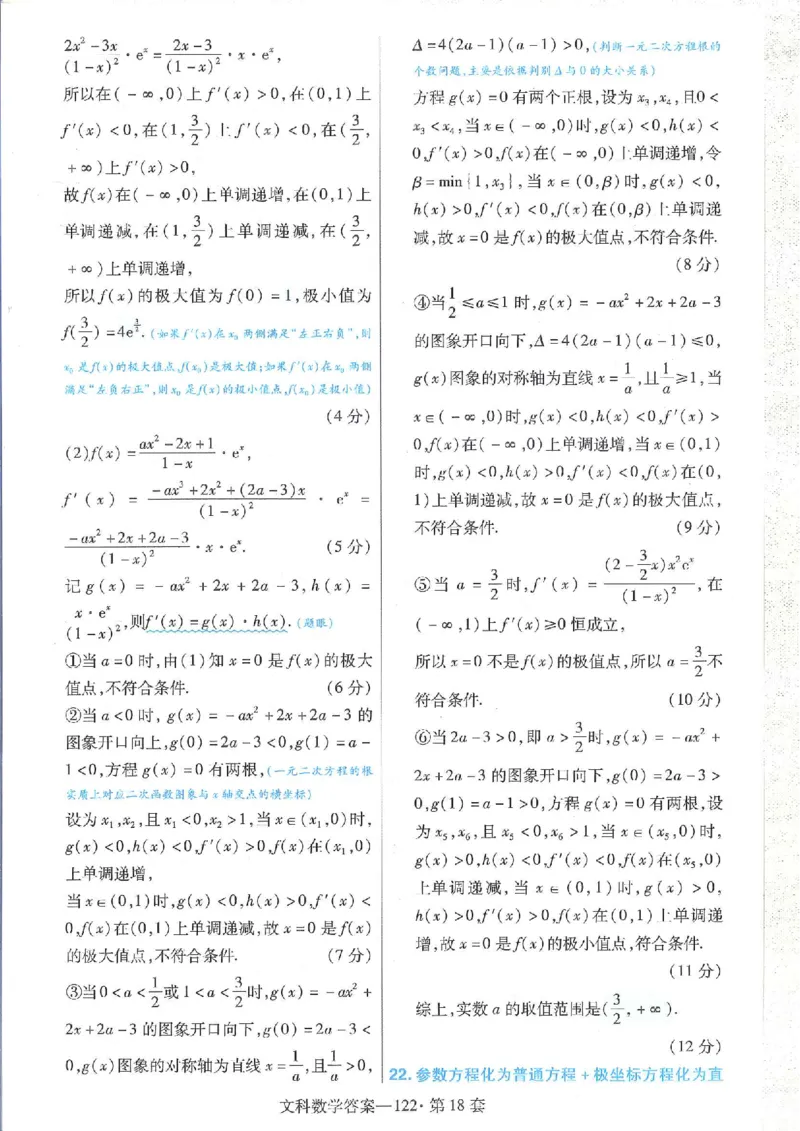 2x²-3x/(1-x)² · eˣ = 2x-3/(1-x)² · x · eˣ,
所以在(-∞,0)上f′(x)>0,在(0,1)上
f′(x)<0,在(1,3/2)上f′(x)<0,在(3/2,
+∞)上f′(x)>0,
故f(x)在(-∞,0)上单调递增,在(0,1)上
单调递减,在(1,3/2)上单调递减,在(3/2,
+∞)上单调递增,
所以f(x)的极大值为f(0)=1,极小值为
f(3/2)=4e^(3/2).(如果f′(x)在x₀两侧满足“左正右负”,则
x₀是f(x)的极大值点,f(x₀)是极大值;如果f′(x)在x₀两侧
满足“左负右正”,则x₀是f(x)的极小值点,f(x₀)是极小值)
(4分)
(2)f(x)=ax²-2x+1/1-x · eˣ,
f′(x)=-ax³+2x²+(2a-3)x/(1-x)² · eˣ =
-ax²+2x+2a-3/(1-x)² · x · eˣ. (5分)
记g(x)=-ax²+2x+2a-3,h(x)=
x·eˣ/(1-x)²,则f′(x)=g(x)·h(x).(题眼)
①当a=0时,由(1)知x=0是f(x)的极大
值点,不符合条件. (6分)
②当a<0时,g(x)=-ax²+2x+2a-3的
图象开口向上,g(0)=2a-3<0,g(1)=a-
1<0,方程g(x)=0有两根,(一元二次方程的根
实质上对应二次函数图象与x轴交点的横坐标)
设为x₁,x₂,且x₁<0,x₂>1,当x∈(x₁,0)时,
g(x)<0,h(x)<0,f′(x)>0,f(x)在(x₁,0)
上单调递增,
当x∈(0,1)时,g(x)<0,h(x)>0,f′(x)<
0,f(x)在(0,1)上单调递减,故x=0是f(x)
的极大值点,不符合条件. (7分)
③当0<a<1/2或1<a<3/2时,g(x)=-ax²+
2x+2a-3的图象开口向下,g(0)=2a-3<
0,g(x)图象的对称轴为直线x=1/a,且1/a>0,
Δ=4(2a-1)(a-1)>0,(判断一元二次方程根的
个数问题,主要是依据判别Δ与0的大小关系)
方程g(x)=0有两个正根,设为x₃,x₄,且0<
x₃<x₄,当x∈(-∞,0)时,g(x)<0,h(x)<
0,f′(x)>0,f(x)在(-∞,0)上单调递增,令
β=min{1,x₃},当x∈(0,β)时,g(x)<0,
h(x)>0,f′(x)<0,f(x)在(0,β)上单调递
减,故x=0是f(x)的极大值点,不符合条件.
(8分)
④当1/2≤a≤1时,g(x)=-ax²+2x+2a-3
的图象开口向下,Δ=4(2a-1)(a-1)≤0,
g(x)图象的对称轴为直线x=1/a,且1/a≥1,当
x∈(-∞,0)时,g(x)<0,h(x)<0,f′(x)>
0,f(x)在(-∞,0)上单调递增,当x∈(0,1)
时,g(x)<0,h(x)>0,f′(x)<0,f(x)在(0,
1)上单调递减,故x=0是f(x)的极大值点,
不符合条件. (9分)
⑤当a=3/2时,f′(x)=(2-3/2x)x²eˣ/(1-x)²,在
(-∞,1)上f′(x)≥0恒成立,
所以x=0不是f(x)的极值点,所以a=3/2不
符合条件. (10分)
⑥当2a-3>0,即a>3/2时,g(x)=-ax²+
2x+2a-3的图象开口向下,g(0)=2a-3>
0,g(1)=a-1>0,方程g(x)=0有两根,设
为x₅,x₆,且x₅<0,x₆>1,当x∈(x₅,0)时,
g(x)>0,h(x)<0,f′(x)<0,f(x)在(x₅,0)
上单调递减,当x∈(0,1)时,g(x)>0,
h(x)>0,f′(x)>0,f(x)在(0,1)上单调递
增,故x=0是f(x)的极小值点,符合条件.
(11分)
综上,实数a的取值范围是(3/2,+∞).
(12分)
22.参数方程化为普通方程+极坐标方程化为直
文科数学答案—122·第18套